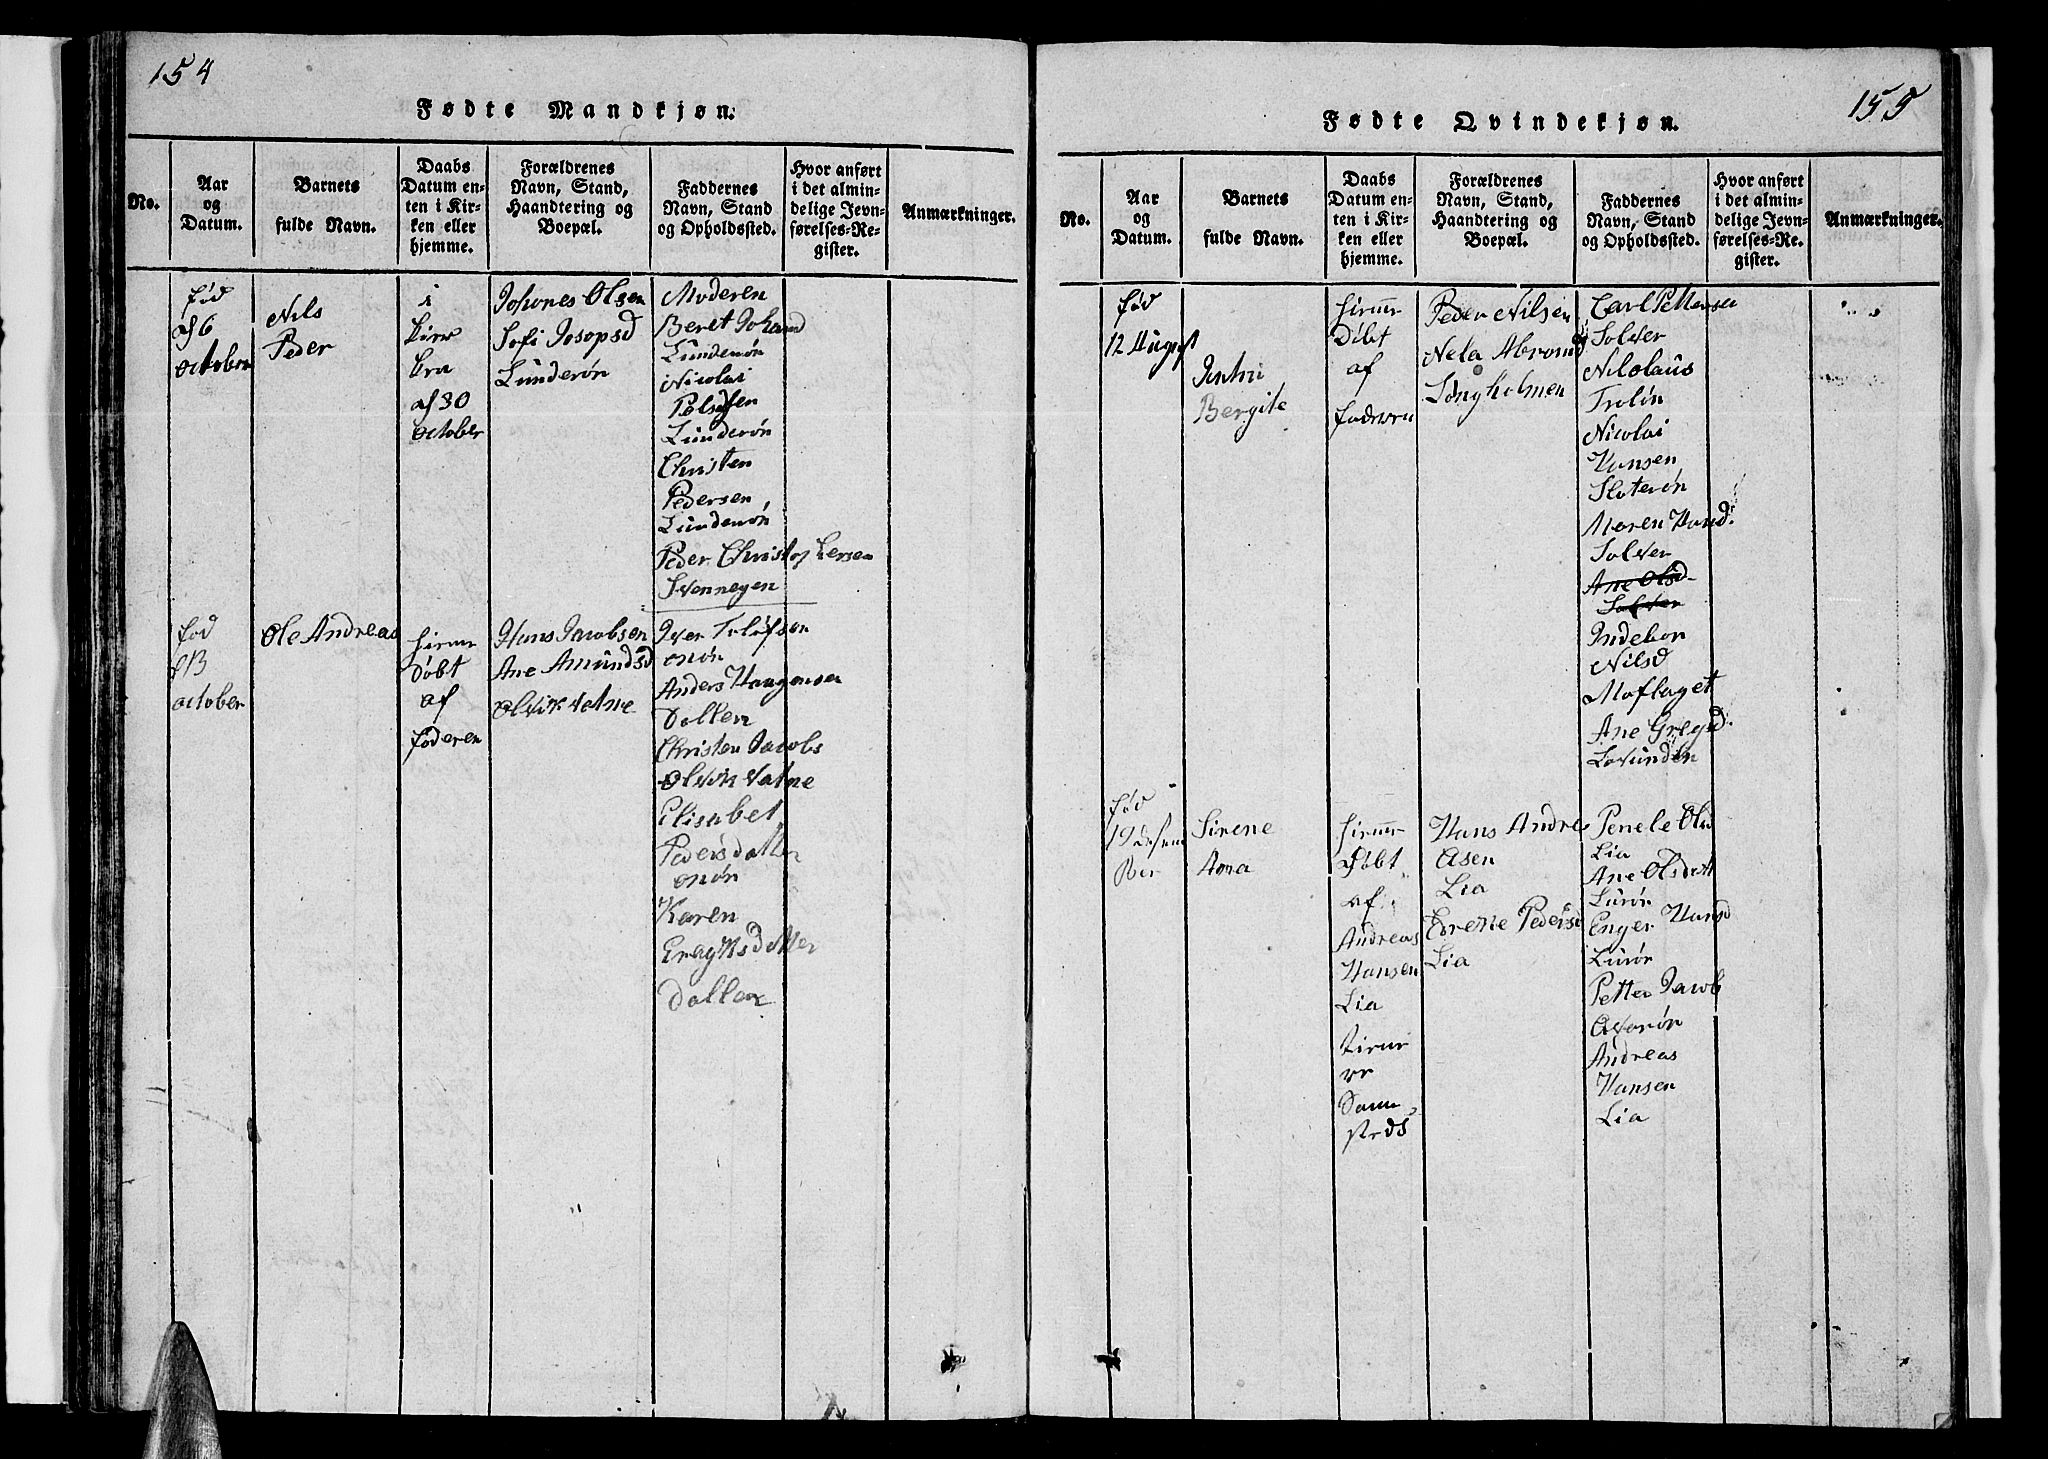 154
Fødte Mandkjøn.
No.
Aar
og
Datum.
Barnets
fulde Navn.
Daabs
Datum en-
ten i Kir-
ken eller
hjemme.
Forældrenes
Navn, Stand,
Haandtering og
Boepæl.
Faddernes
Navn, Stand
og Opholdssted.
Hvor anført
i det almin-
delige Jevn-
førelses-Re-
gister.
Anmærkninger.
fød
d 6
october
Nils
Peder
i
af 30
october
Johanes Olsen
Sofi Josopsd
Lunderøn
Moderen
Beret Johansd
Lunderøn
Nicolai
Lunderøn
Christen
Pedersen
Lunderøn
Peder Christophersen
Svennegen
fød
october
Ole Andreas
hiemme
Døbt
af
foderen
Hans Jacobsen
Ane Amundsd
Olvik vatne
Iver Tolofsen
onøn
Anders Haagensen
Dallen
Christen Jacobs
Olvik vatne
Elisabet
Pedersdatter
onøn
Karen
datter
Dallen
155
Fødte Qvindekjøn.
No.
Aar
og
Datum.
Barnets
fulde Navn.
Daabs
Datum en-
ten i Kir-
ken eller
hjemme.
Forældrenes
Navn, Stand,
Haandtering og
Boepæl.
Faddernes
Navn, Stand
og Opholdssted.
Hvor anført
i det almin-
delige Jevn-
førelses-Re-
gister.
Anmærkninger.
fød
12 August
Bergite
hiemme
Døbt
af
Peder Nilsen
Nela Abromsd
Songholmen
Carl Pettersen
Solver
Nilolaus
Troløn
Nicolai
Hansen
Sloterøn
Maren Hansd.
Solver
Ane Olsd
Solver
Indebor
Nilsd
Moflaget
Ane Gregd.
Lovunden
fød
19 desem
Ber
Sirene
Anna
hiemme
Døbt
af
Andreas
Hansen
Lia
Hans Andre
asen
Lia
Pedersd
Lia
Penele Olsd
Lia
Ane Olsdat
Lurøn
Enger Hansd
Lurøn
Petter Jacob
Alvarøn
Andreas
Hansen
Lia